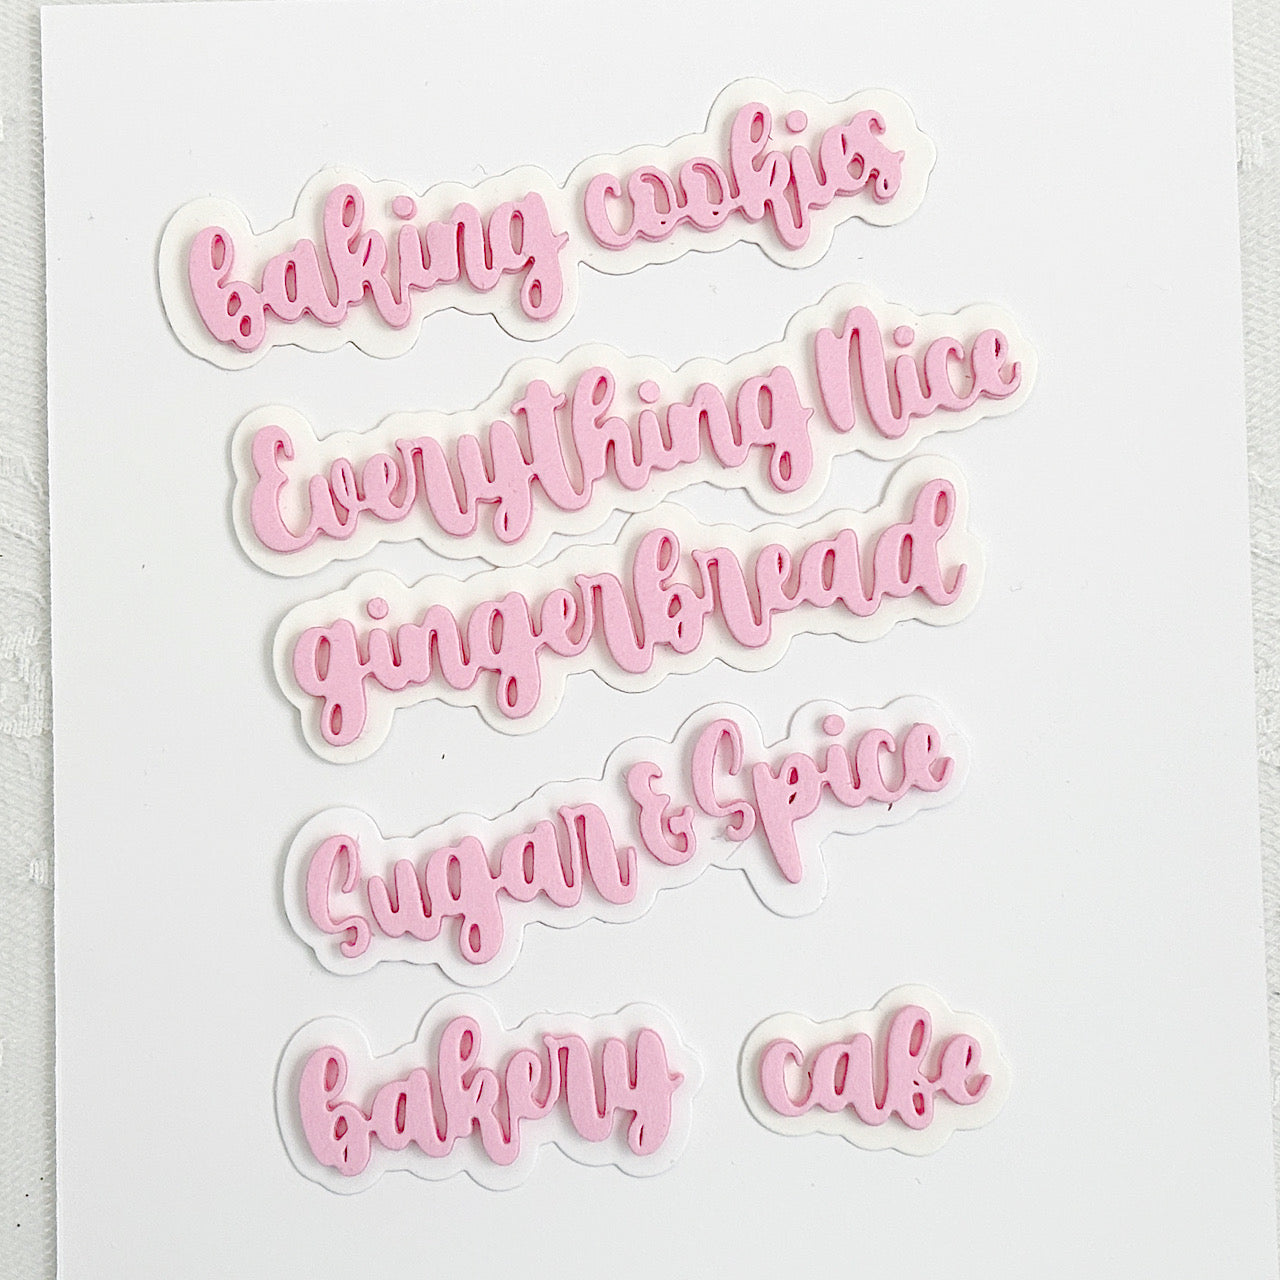 baking cookies
Everything Nice
gingerbread
Sugar & Spice
bakery
cafe